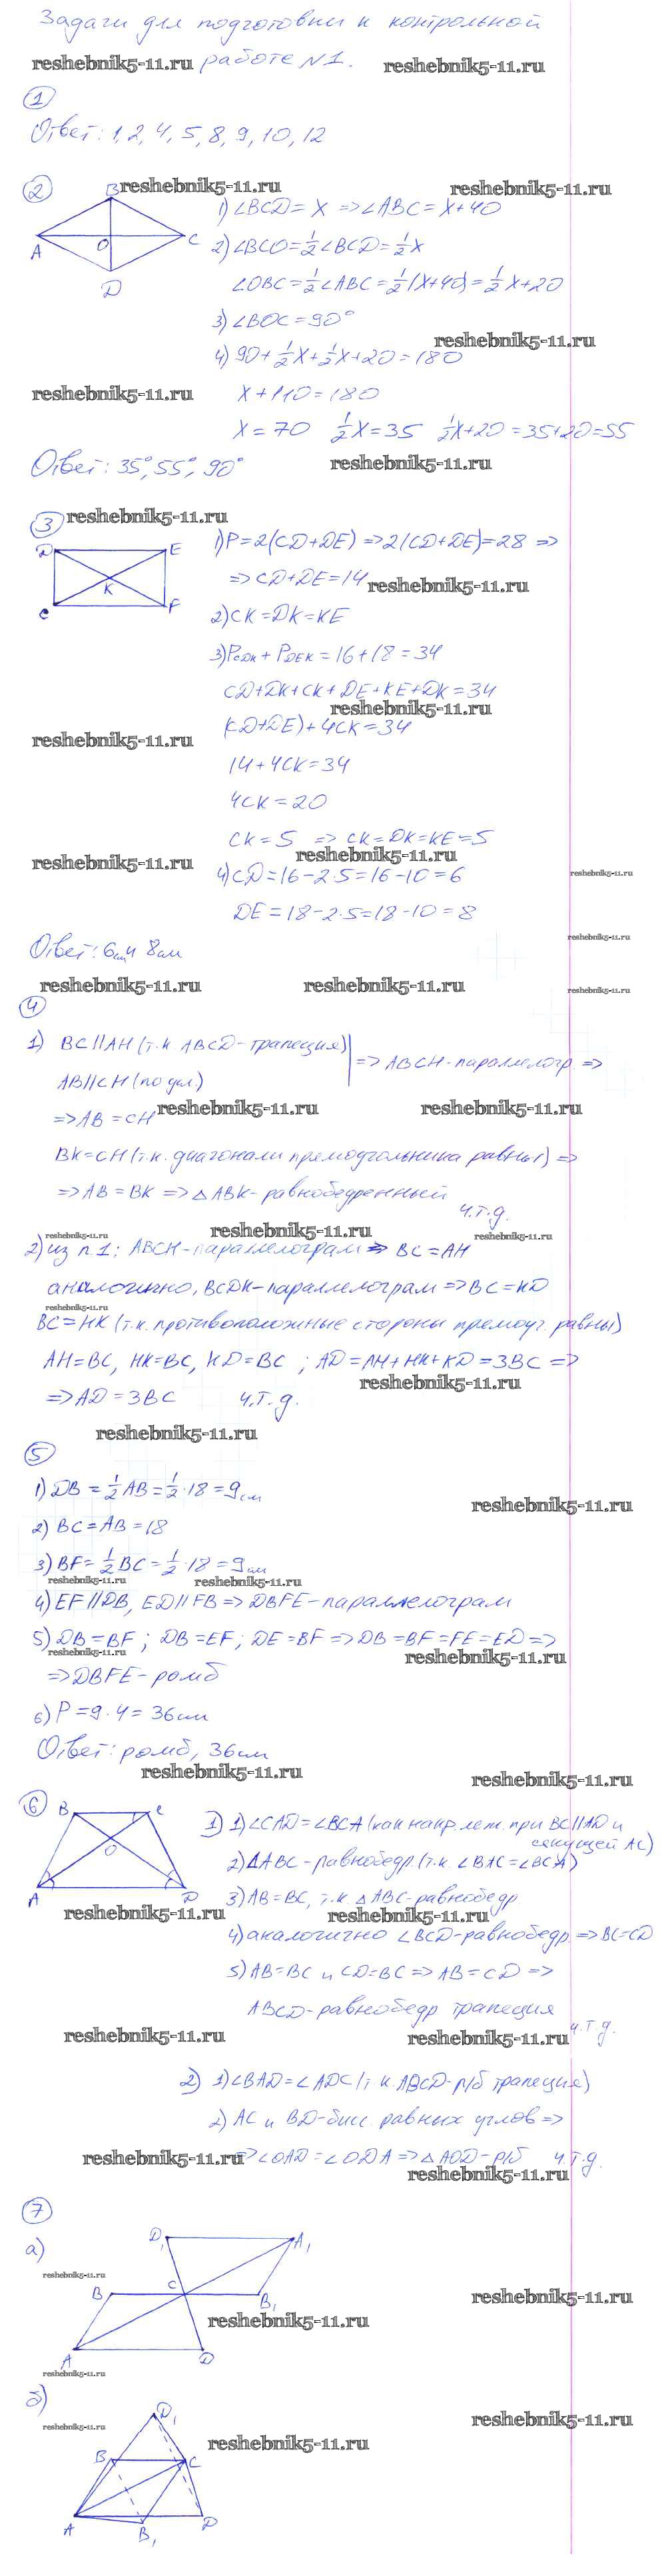 Задачи для подготовки к контрольной
reshebnik5-11.ru работе N1. reshebnik5-11.ru
1
Ответ: 1, 2, 4, 5, 8, 9, 10, 12
2 B reshebnik5-11.ru reshebnik5-11.ru
1) ∠BCD = x => ∠ABC = x+40
A O C 2) ∠BCO = 1/2 ∠BCD = 1/2 x
D ∠OBC = 1/2 ∠ABC = 1/2 (x+40) = 1/2 x+20
3) ∠BOC = 90°
reshebnik5-11.ru
4) 90 + 1/2 x + 1/2 x + 20 = 180
reshebnik5-11.ru x + 110 = 180
x = 70 1/2 x = 35 1/2 x+20 = 35+20 = 55
Ответ: 35°, 55°, 90° reshebnik5-11.ru
3 reshebnik5-11.ru
D E 1) P = 2(CD+DE) => 2(CD+DE) = 28 =>
K => CD+DE = 14 reshebnik5-11.ru
C F 2) CK = DK = KE
3) PCDK + PDEK = 16+18 = 34
CD+DK+CK+DE+KE+DK = 34
reshebnik5-11.ru
(CD+DE)+4CK = 34
reshebnik5-11.ru
14+4CK = 34
4CK = 20
CK = 5 => CK = DK = KE = 5
reshebnik5-11.ru reshebnik5-11.ru
4) CD = 16-2·5 = 16-10 = 6 reshebnik5-11.ru
DE = 18-2·5 = 18-10 = 8
reshebnik5-11.ru
Ответ: 6см и 8см
reshebnik5-11.ru reshebnik5-11.ru reshebnik5-11.ru
4
1) BC||AH (т.к ABCD-трапеция) => ABCH-параллелогр. =>
AB||CH (по усл.)
=> AB = CH reshebnik5-11.ru reshebnik5-11.ru
BK = CH (т.к. диагонали прямоугольника равны) =>
=> AB = BK => △ABK-равнобедренный
ч.т.д.
reshebnik5-11.ru reshebnik5-11.ru reshebnik5-11.ru
2) из п.1: ABCH-параллелограм => BC = AH
аналогично, BCDK-параллелограм => BC = KD
reshebnik5-11.ru
BC = HK (т.к. противоположные стороны прямоуг. равны)
AH = BC, HK = BC, KD = BC ; AD = AH+HK+KD = 3BC =>
reshebnik5-11.ru
=> AD = 3BC ч.т.д.
reshebnik5-11.ru
5
1) DB = 1/2 AB = 1/2 · 18 = 9см
reshebnik5-11.ru
2) BC = AB = 18
3) BF = 1/2 BC = 1/2 · 18 = 9см
reshebnik5-11.ru reshebnik5-11.ru
4) EF||DB, ED||FB => DBFE-параллелограм
5) DB = BF ; DB = EF; DE = BF => DB = BF = FE = ED =>
reshebnik5-11.ru reshebnik5-11.ru
=> DBFE-ромб
6) P = 9·4 = 36см
Ответ: ромб, 36см
reshebnik5-11.ru reshebnik5-11.ru
6 B C 1) 1) ∠CAD = ∠BCA (как накр. леж. при BC||AD и
O секущей AC)
2) △ABC-равнобедр (т.к. ∠BAC = ∠BCA)
A D 3) AB = BC, т.к △ABC-равнобедр
reshebnik5-11.ru reshebnik5-11.ru
4) аналогично ∠BCD-равнобедр. => BC = CD
5) AB = BC и CD = BC => AB = CD =>
ABCD-равнобедр трапеция
reshebnik5-11.ru reshebnik5-11.ru ч.т.д.
2) 1) ∠BAD = ∠ADC (т.к. ABCD-р/б трапеция)
2) AC и BD-бис равных углов =>
reshebnik5-11.ru => ∠OAD = ∠ODA => △AOD-р/б ч.т.д.
reshebnik5-11.ru
7
а) D1 A1
reshebnik5-11.ru
B C B1 reshebnik5-11.ru
reshebnik5-11.ru
A D
reshebnik5-11.ru
б) D1
reshebnik5-11.ru reshebnik5-11.ru
reshebnik5-11.ru
B C
A B1 D